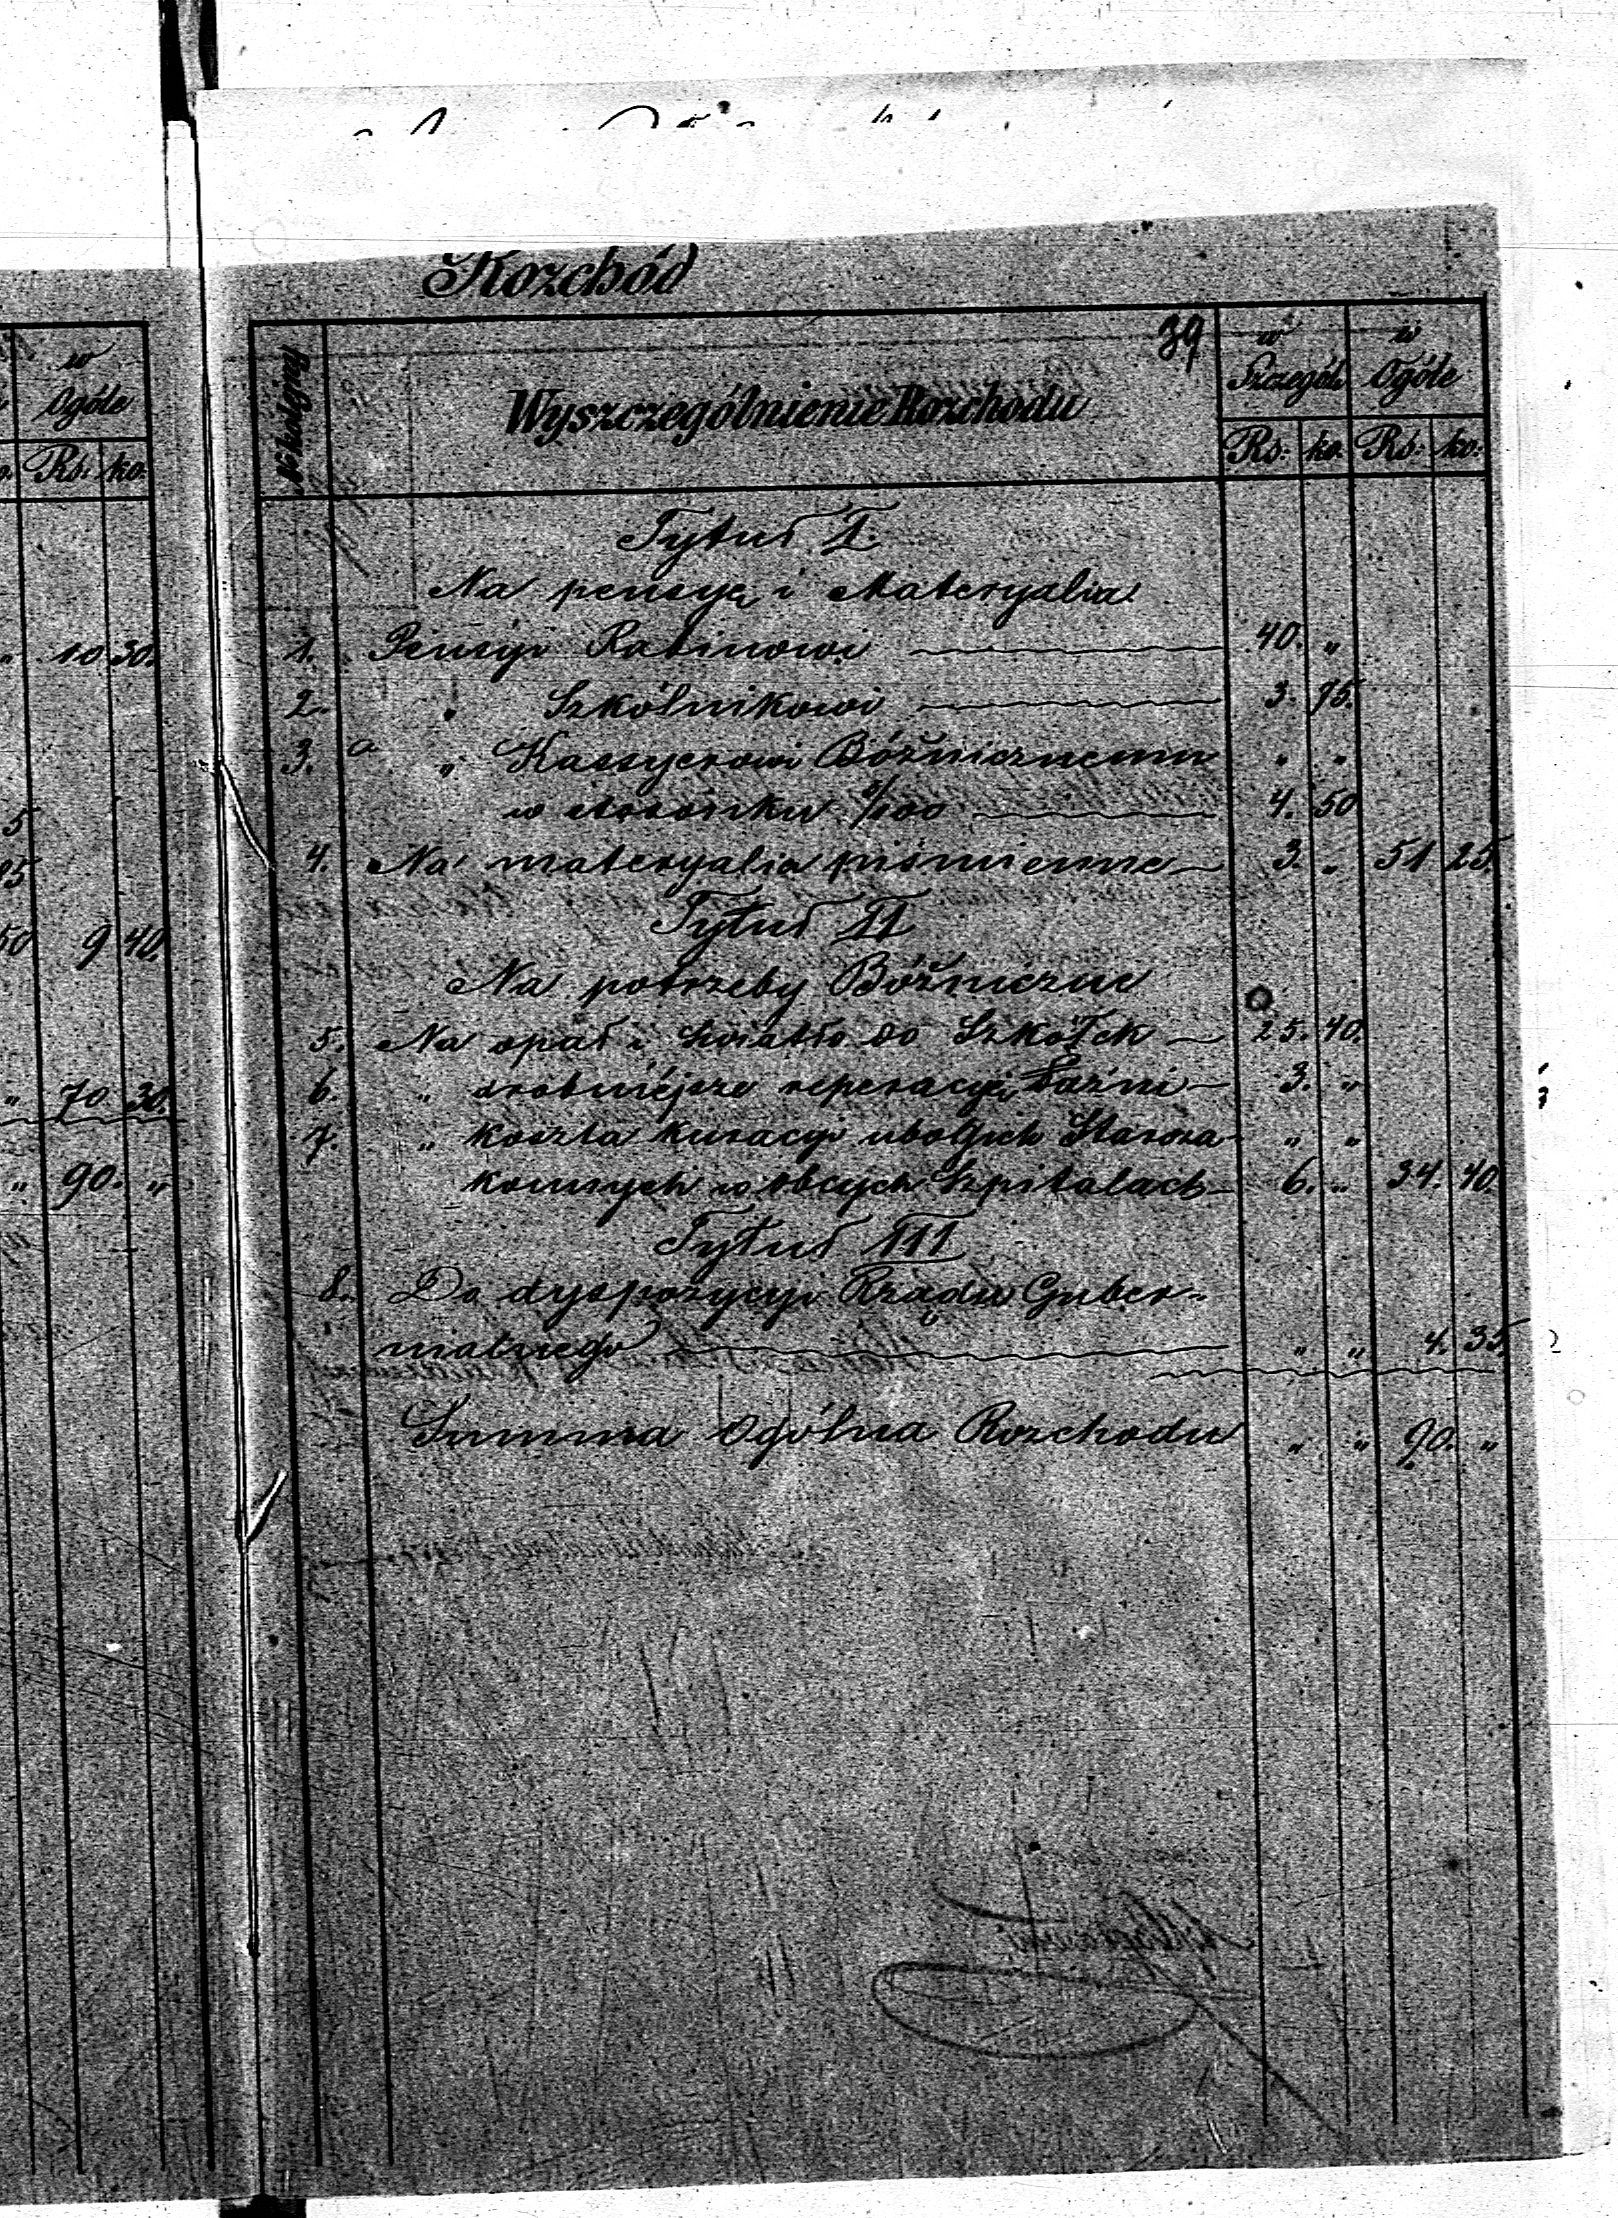 Rozchód
w
Ogóle
Rs: ko:
10 30.
5
50 9 40.
" 70 30.
" 90. "
№ kolejny
39
Wyszczególnienie Rozchodu
w Szczegól: w Ogóle
Rs: ko. Rs: ko:
Tytuł I.
Na pensyę i Materyalia
1. Pensyi Rabinowi 40. "
2. " Szkólnikowi 3. 75.
3. a " Kassyerowi Bóżnicznemu " "
w stosunku /100 4. 50
4. Na materyalia piśmienne 3. " 51 25.
Tytuł II
Na potrzeby Bóżniczne
5. Na opał i światło do Szkółek 25. 40.
6. " drobniejsze reperacye Łaźni 3. "
7. " koszta kuracyi ubogich Staroza- " "
konnych w obcych Szpitalach 6. " 34. 40.
Tytuł III
8. Do dyspozycyi Rządu Guber-
nialnego " " 4. 35.
Summa Ogólna Rozchodu " " 90. "